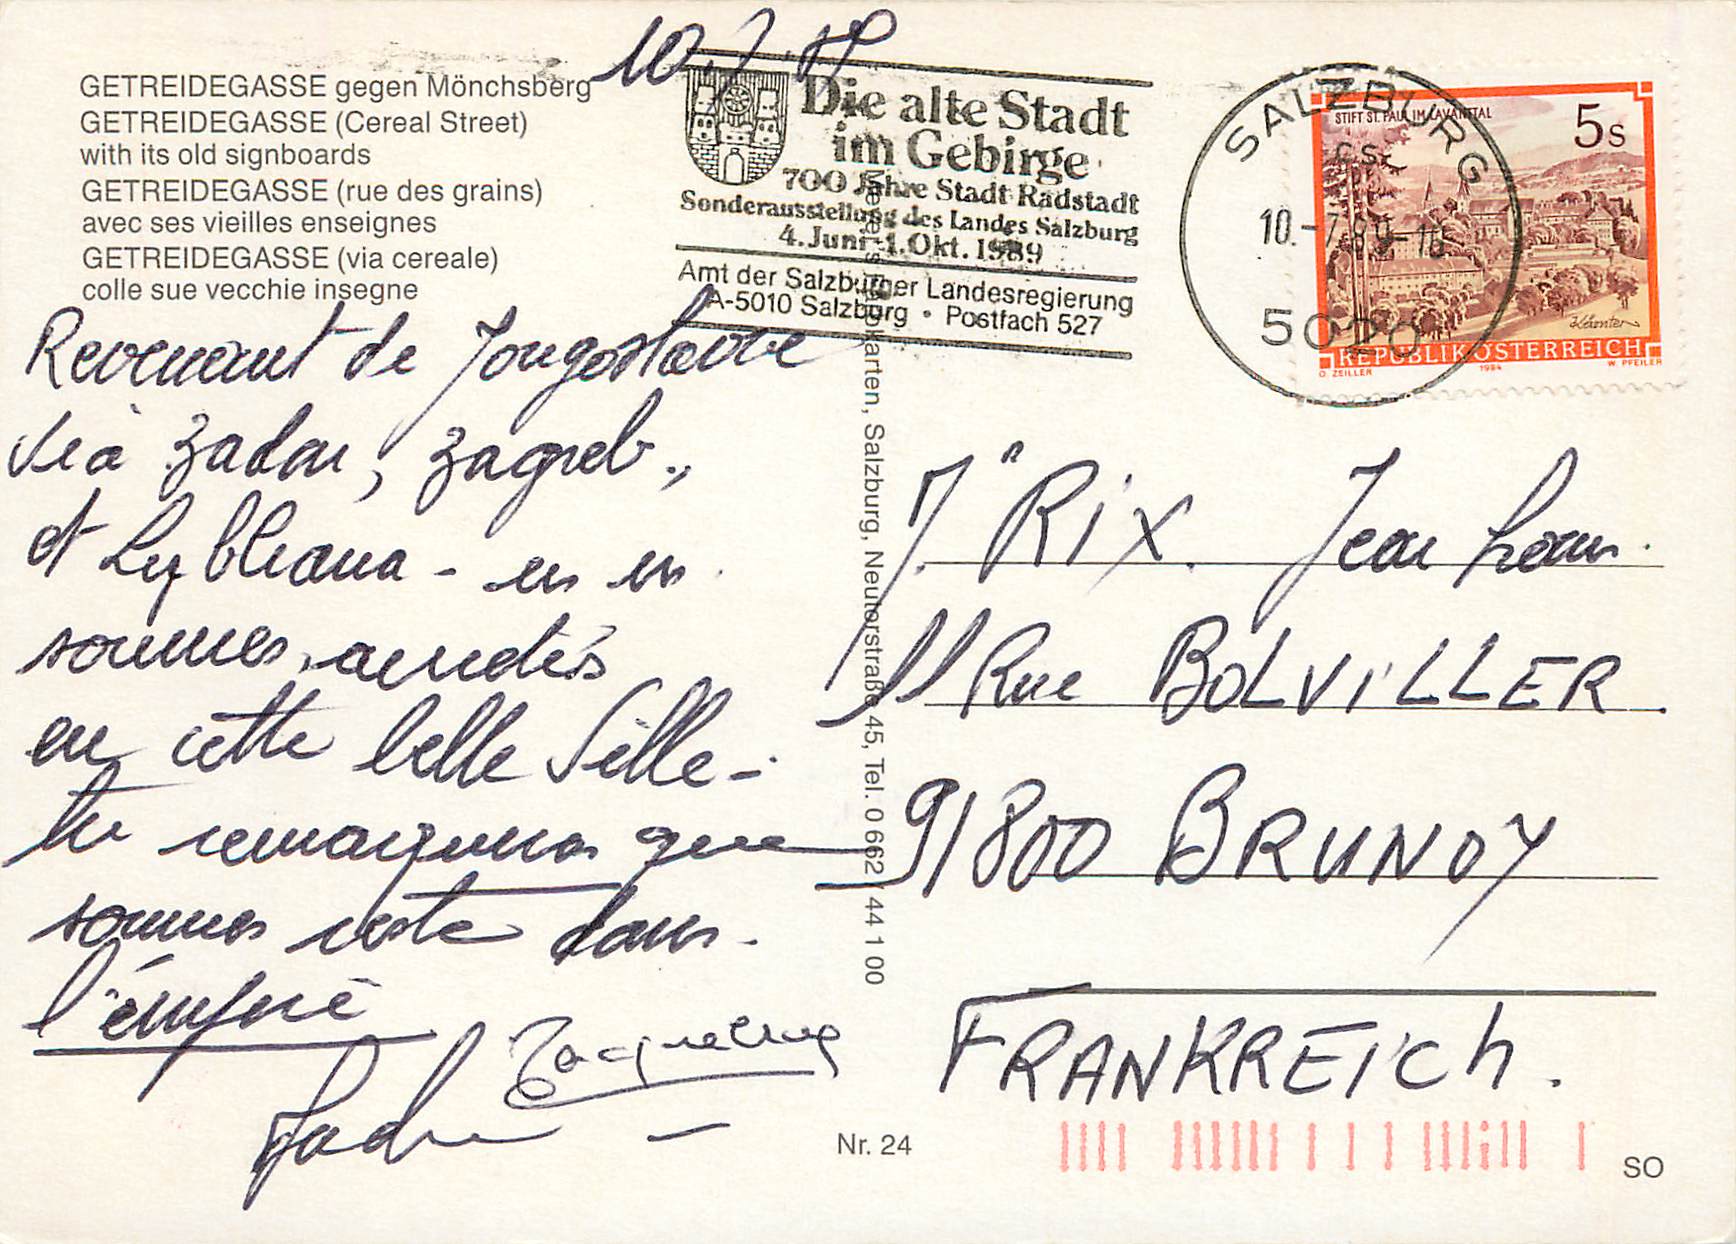 10.7.89
GETREIDEGASSE gegen Mönchsberg
GETREIDEGASSE (Cereal Street)
with its old signboards
GETREIDEGASSE (rue des grains)
avec ses vieilles enseignes
GETREIDEGASSE (via cereale)
colle sue vecchie insegne
Die alte Stadt
im Gebirge
700 Jahre Stadt Radstadt
Sonderausstellung des Landes Salzburg
4. Juni-1. Okt. 1989
Amt der Salzburger Landesregierung
A-5010 Salzburg • Postfach 527
SALZBURG
10.-7.89-18
5020
STIFT ST. PAUL IM LAVANTTAL
5s
Kärnten
REPUBLIK ÖSTERREICH
O. ZEILLER 1984 W. PFEILER
Revenant de Yougoslavie
via Zadar, Zagreb,
et Lybliana - en en
sommes arretés
en cette belle ville -
tu remarqueras que
sommes resté dans
l'empire
Jacqueline
karten, Salzburg, Neutorstraße 45, Tel. 0 662 / 44 1 00
M. RIX. Jean Louis.
11 Rue BOLVILLER.
91800 BRUNOY
FRANKREICH.
Nr. 24
SO